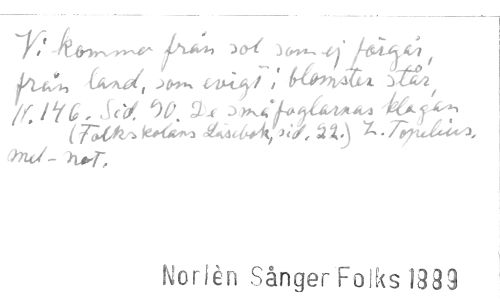 Vi komma från sol som ej förgår,
från land, som evigt i blomster står,
N. 146. Sid. 90. De småfoglarnas klagan
(Folkskolans Läsebok, sid. 22.) Z. Topelius.
mel-not.
Norlèn Sånger Folks 1889